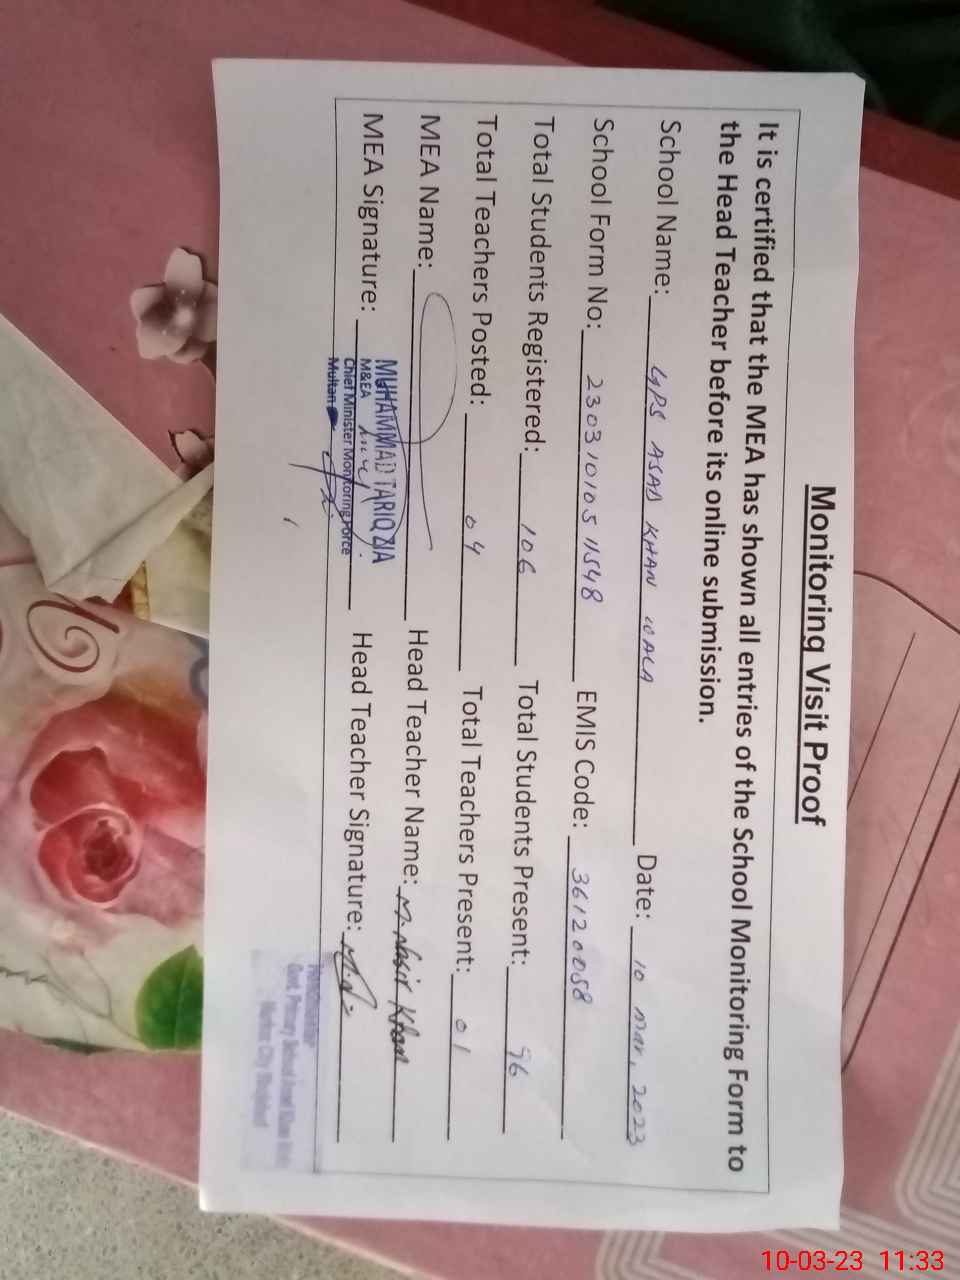 Monitoring Visit Proof
It is certified that the MEA has shown all entries of the School Monitoring Form to
the Head Teacher before its online submission.
School Name: GPS ASAD KHAN WALA Date: 10 mar, 2023
School Form No: 2303101051548 EMIS Code: 36120058
Total Students Registered: 106 Total Students Present: 96
Total Teachers Posted: 04 Total Teachers Present: 01
MEA Name: Head Teacher Name: M. Nasir Khan
MEA Signature: Head Teacher Signature:
MUHAMMAD TARIQ ZIA
M&EA
Chief Minister Monitoring Force
Multan
10-03-23 11:33